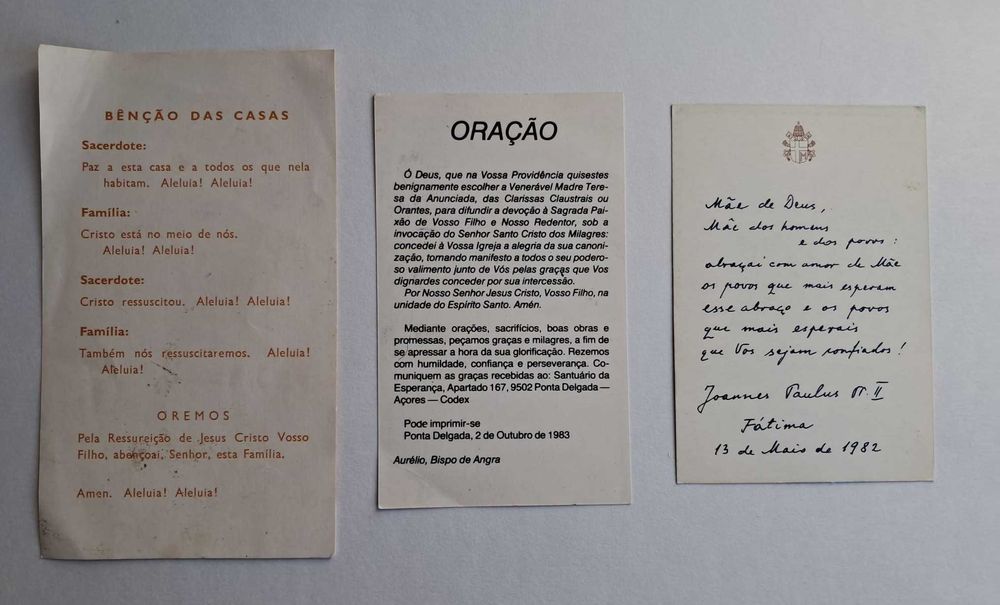 BÊNÇÃO DAS CASAS
Sacerdote:
Paz a esta casa e a todos os que nela
habitam. Aleluia! Aleluia!
Família:
Cristo está no meio de nós.
Aleluia! Aleluia!
Sacerdote:
Cristo ressuscitou. Aleluia! Aleluia!
Família:
Também nós ressuscitaremos. Aleluia!
Aleluia!
OREMOS
Pela Ressureição de Jesus Cristo Vosso
Filho, abençoai, Senhor, esta Família.
Amen. Aleluia! Aleluia!
ORAÇÃO
Ó Deus, que na Vossa Providência quisestes
benignamente escolher a Venerável Madre Tere-
sa da Anunciada, das Clarissas Claustrais ou
Orantes, para difundir a devoção à Sagrada Pai-
xão de Vosso Filho e Nosso Redentor, sob a
invocação do Senhor Santo Cristo dos Milagres:
concedei à Vossa Igreja a alegria da sua canoni-
zação, tornando manifesto a todos o seu podero-
so valimento junto de Vós pelas graças que Vos
dignardes conceder por sua intercessão.
Por Nosso Senhor Jesus Cristo, Vosso Filho, na
unidade do Espírito Santo. Amén.
Mediante orações, sacrifícios, boas obras e
promessas, peçamos graças e milagres, a fim de
se apressar a hora da sua glorificação. Rezemos
com humildade, confiança e perseverança. Co-
muniquem as graças recebidas ao: Santuário da
Esperança, Apartado 167, 9502 Ponta Delgada —
Açores — Codex
Pode imprimir-se
Ponta Delgada, 2 de Outubro de 1983
Aurélio, Bispo de Angra
Mãe de Deus,
Mãe dos homens
e dos povos:
abraçai com amor de Mãe
os povos que mais esperam
esse abraço e os povos
que mais esperais
que Vos sejam confiados!
Joannes Paulus PP. II
Fátima
13 de Maio de 1982